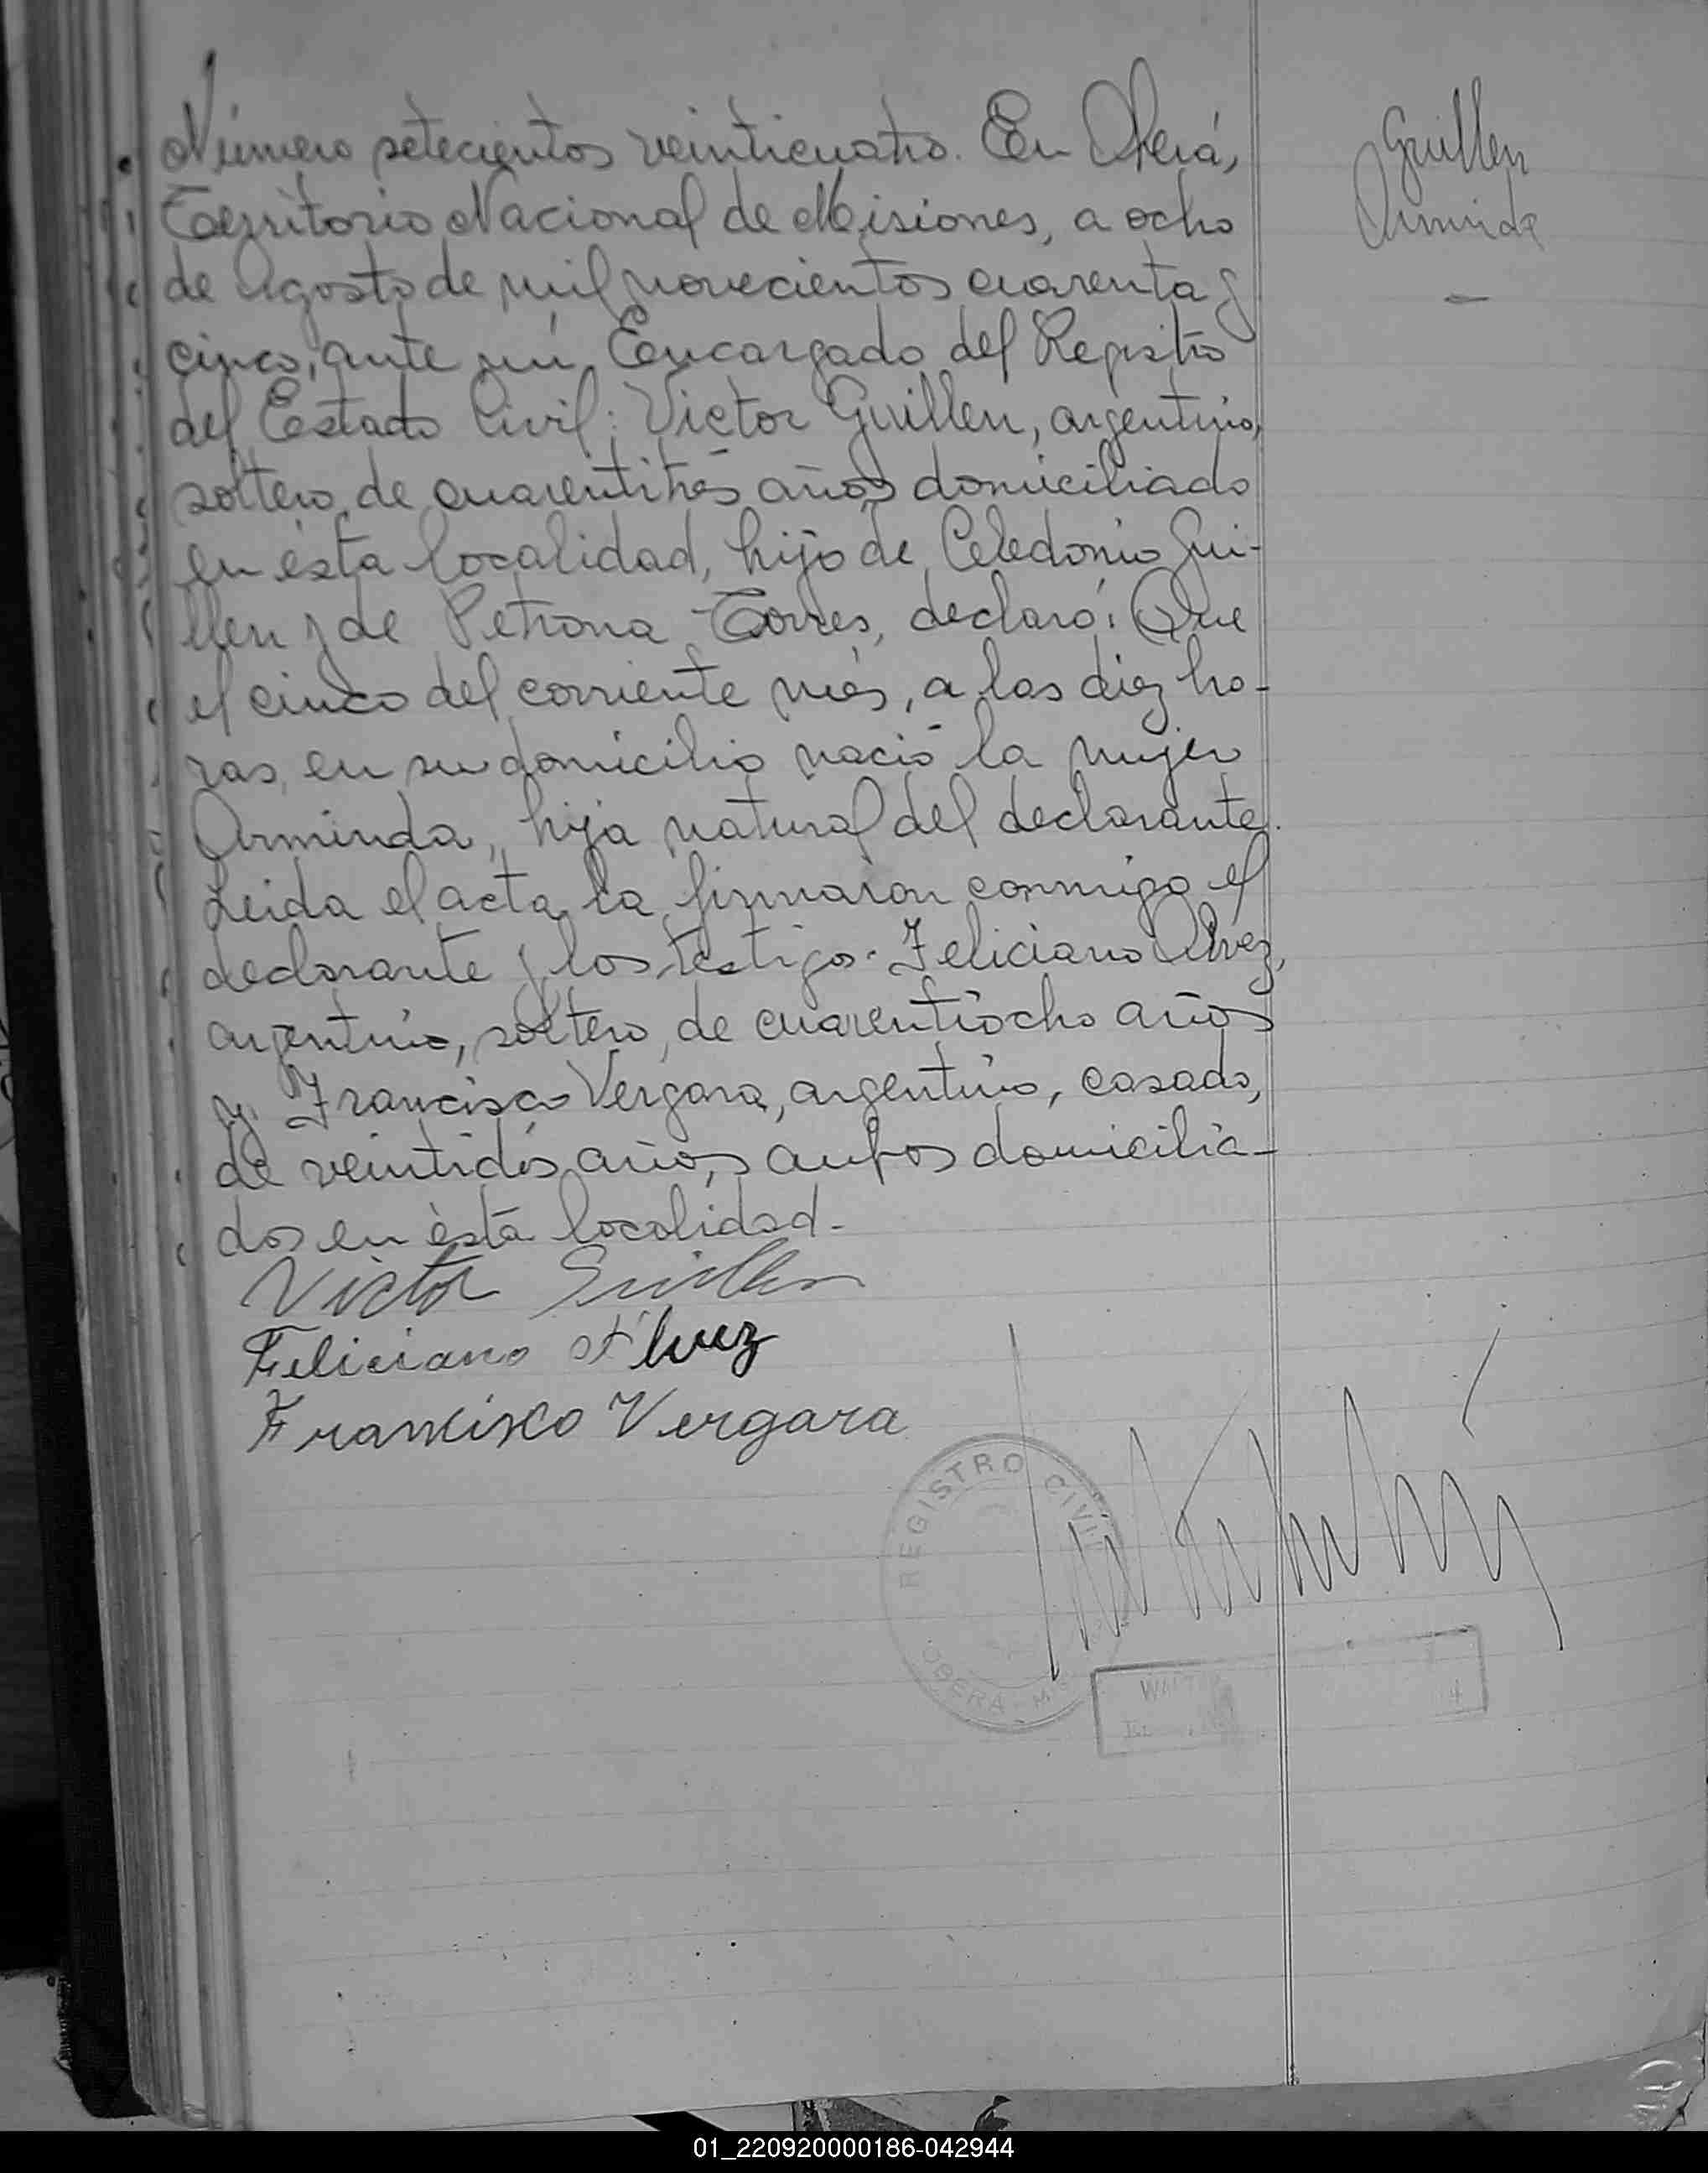 Número setecientos veinticuatro. En Oberá,
Guillen
Territorio Nacional de Misiones, a ocho
Arminda
de Agosto de mil novecientos cuarenta y
cinco, ante mí, Encargado del Registro
del Estado Civil: Victor Guillen, argentino,
soltero, de cuarentitrés años domiciliado
en ésta localidad, hijo de Celedonio Gui-
llen y de Petrona Torres, declaró: Que
el cinco del corriente més, a las diez ho-
ras, en su domicilio nació la mujer
Arminda, hija natural del declarante.
Leida el acta la firmaron conmigo el
declarante y los testigos. Feliciano Alvez,
argentino, soltero, de cuarentiocho años
y Francisco Vergara, argentino, casado,
de veintidós años, ambos domicilia-
dos en ésta localidad.-
Victor Guillen
Feliciano Alvez
Francisco Vergara
REGISTRO CIVIL
OBERÁ
01_220920000186-042944